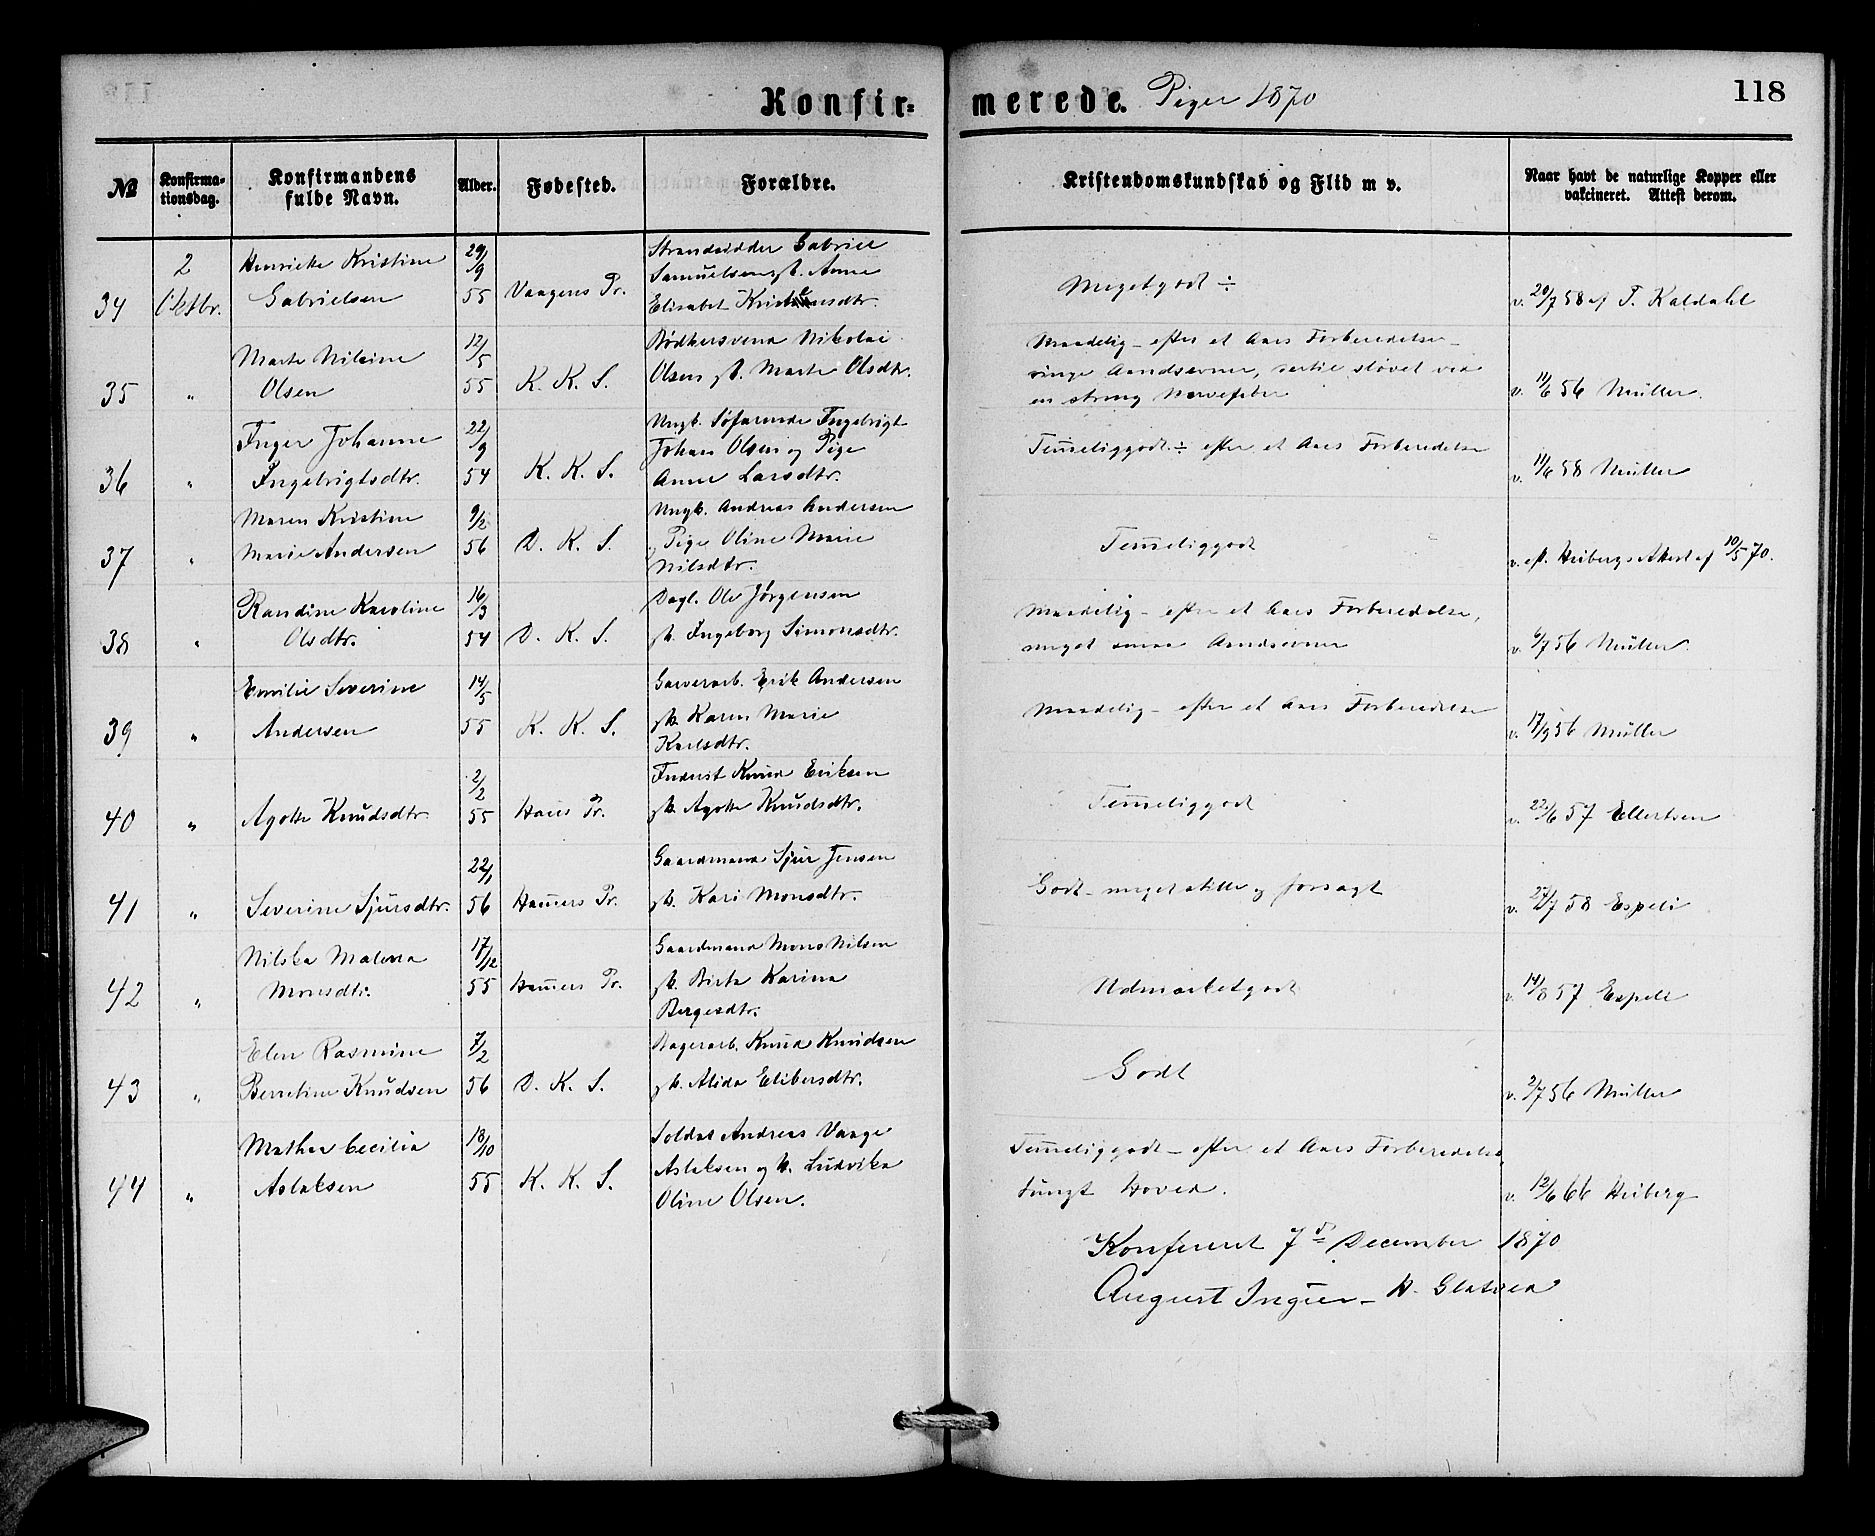 Konfirmerede. Piger 1870
118
№ Konfirmationsdag. Konfirmandens fulde Navn. Alder. Fødested. Forældre. Kristendomskundskab og Flid m v. Naar havt de naturlige Kopper eller vakcineret. Attest derom.
34 2 Oktbr. Henrikke Kristine Gabrielsen 29/9 55 Vaagens Pr.
Strandsidder Gabriel
Samuelsen og h. Anne
Elisabet Kristensdtr.
Megetgodt ÷
v. 20/7 58 af T. Kaldahl
35 " Marte Nilsine Olsen 12/5 55 K. K. S.
Bødkersvend Nikolai
Olsen og h. Marte Olsdtr.
Maadelig – efter et Aars Forberedelse –
ringe Aandsevner, sløvet ved
en streng Nervefeber
v. 11/6 56 Müller.
36 " Inger Johanne Ingebrigtsdtr. 22/9 54 K. K. S.
Ungk. Søfarende Ingebrigt
Johan Olsen og Pige
Anne Larsdtr.
Temeliggodt ÷ efter et Aars Forberedelse
v. 11/6 58 Müller
37 " Maren Kristine Marie Andersen 9/2 56 D. K. S.
Ungk. Andreas Andersen
og Pige Oline Marie
Nilsdtr.
Temeliggodt
v. eft. Heibergs Attest af 10/5 70.
38 " Randine Karoline Olsdtr. 16/3 54 D. K. S.
Dagl. Ole Jørgensen
og h. Ingeborg Simonsdtr.
Maadelig – efter et Aars Forberedelse,
meget smaa Aandsevner
v. 6/7 56 Müller
39 " Emilie Severine Andersen 14/5 55 K. K. S.
Garverarb. Erik Andersen
og h. Karen Marie
Karlsdtr.
Maadelig – efter et Aars Forberedelse
v. 17/9 56 Müller
40 " Agothe Knudsdtr. 2/2 55 Haus Pr.
Inderst Knud Eriksen
og h. Agothe Knudsdtr.
Temeliggodt
v. 22/6 57 Ellertsen
41 " Severine Sjursdtr. 22/1 56 Hamers Pr.
Gaardmand Sjur Jensen
og h. Kari Monsdtr.
Godt – meget stille og forsagt
v. 27/7 58 Espeli
42 " Nilska Malena Monsdtr. 17/12 55 Hamers Pr.
Gaardmand Mons Nilsen
og h. Birta Karina
Bergesdtr.
Udmærketgodt
v. 14/8 57 Espeli
43 " Elen Rasmine Berretine Knudsen 7/2 56 D. K. S.
Bagerarb. Knud Knudsen
og h. Alida Elibersdtr.
Godt
v. 2/7 56 Müller
44 " Mathea Cecilia Aslaksen 18/10 55 K. K. S.
Soldat Andreas Vaage
Aslaksen og h. Ludvika
Oline Olsen.
Temeliggodt – efter et Aars Forberedelse,
tungt Hoved.
v. 12/6 66 Heiberg
Konfereret 7de December 1870
August Ingier – H. Glatved